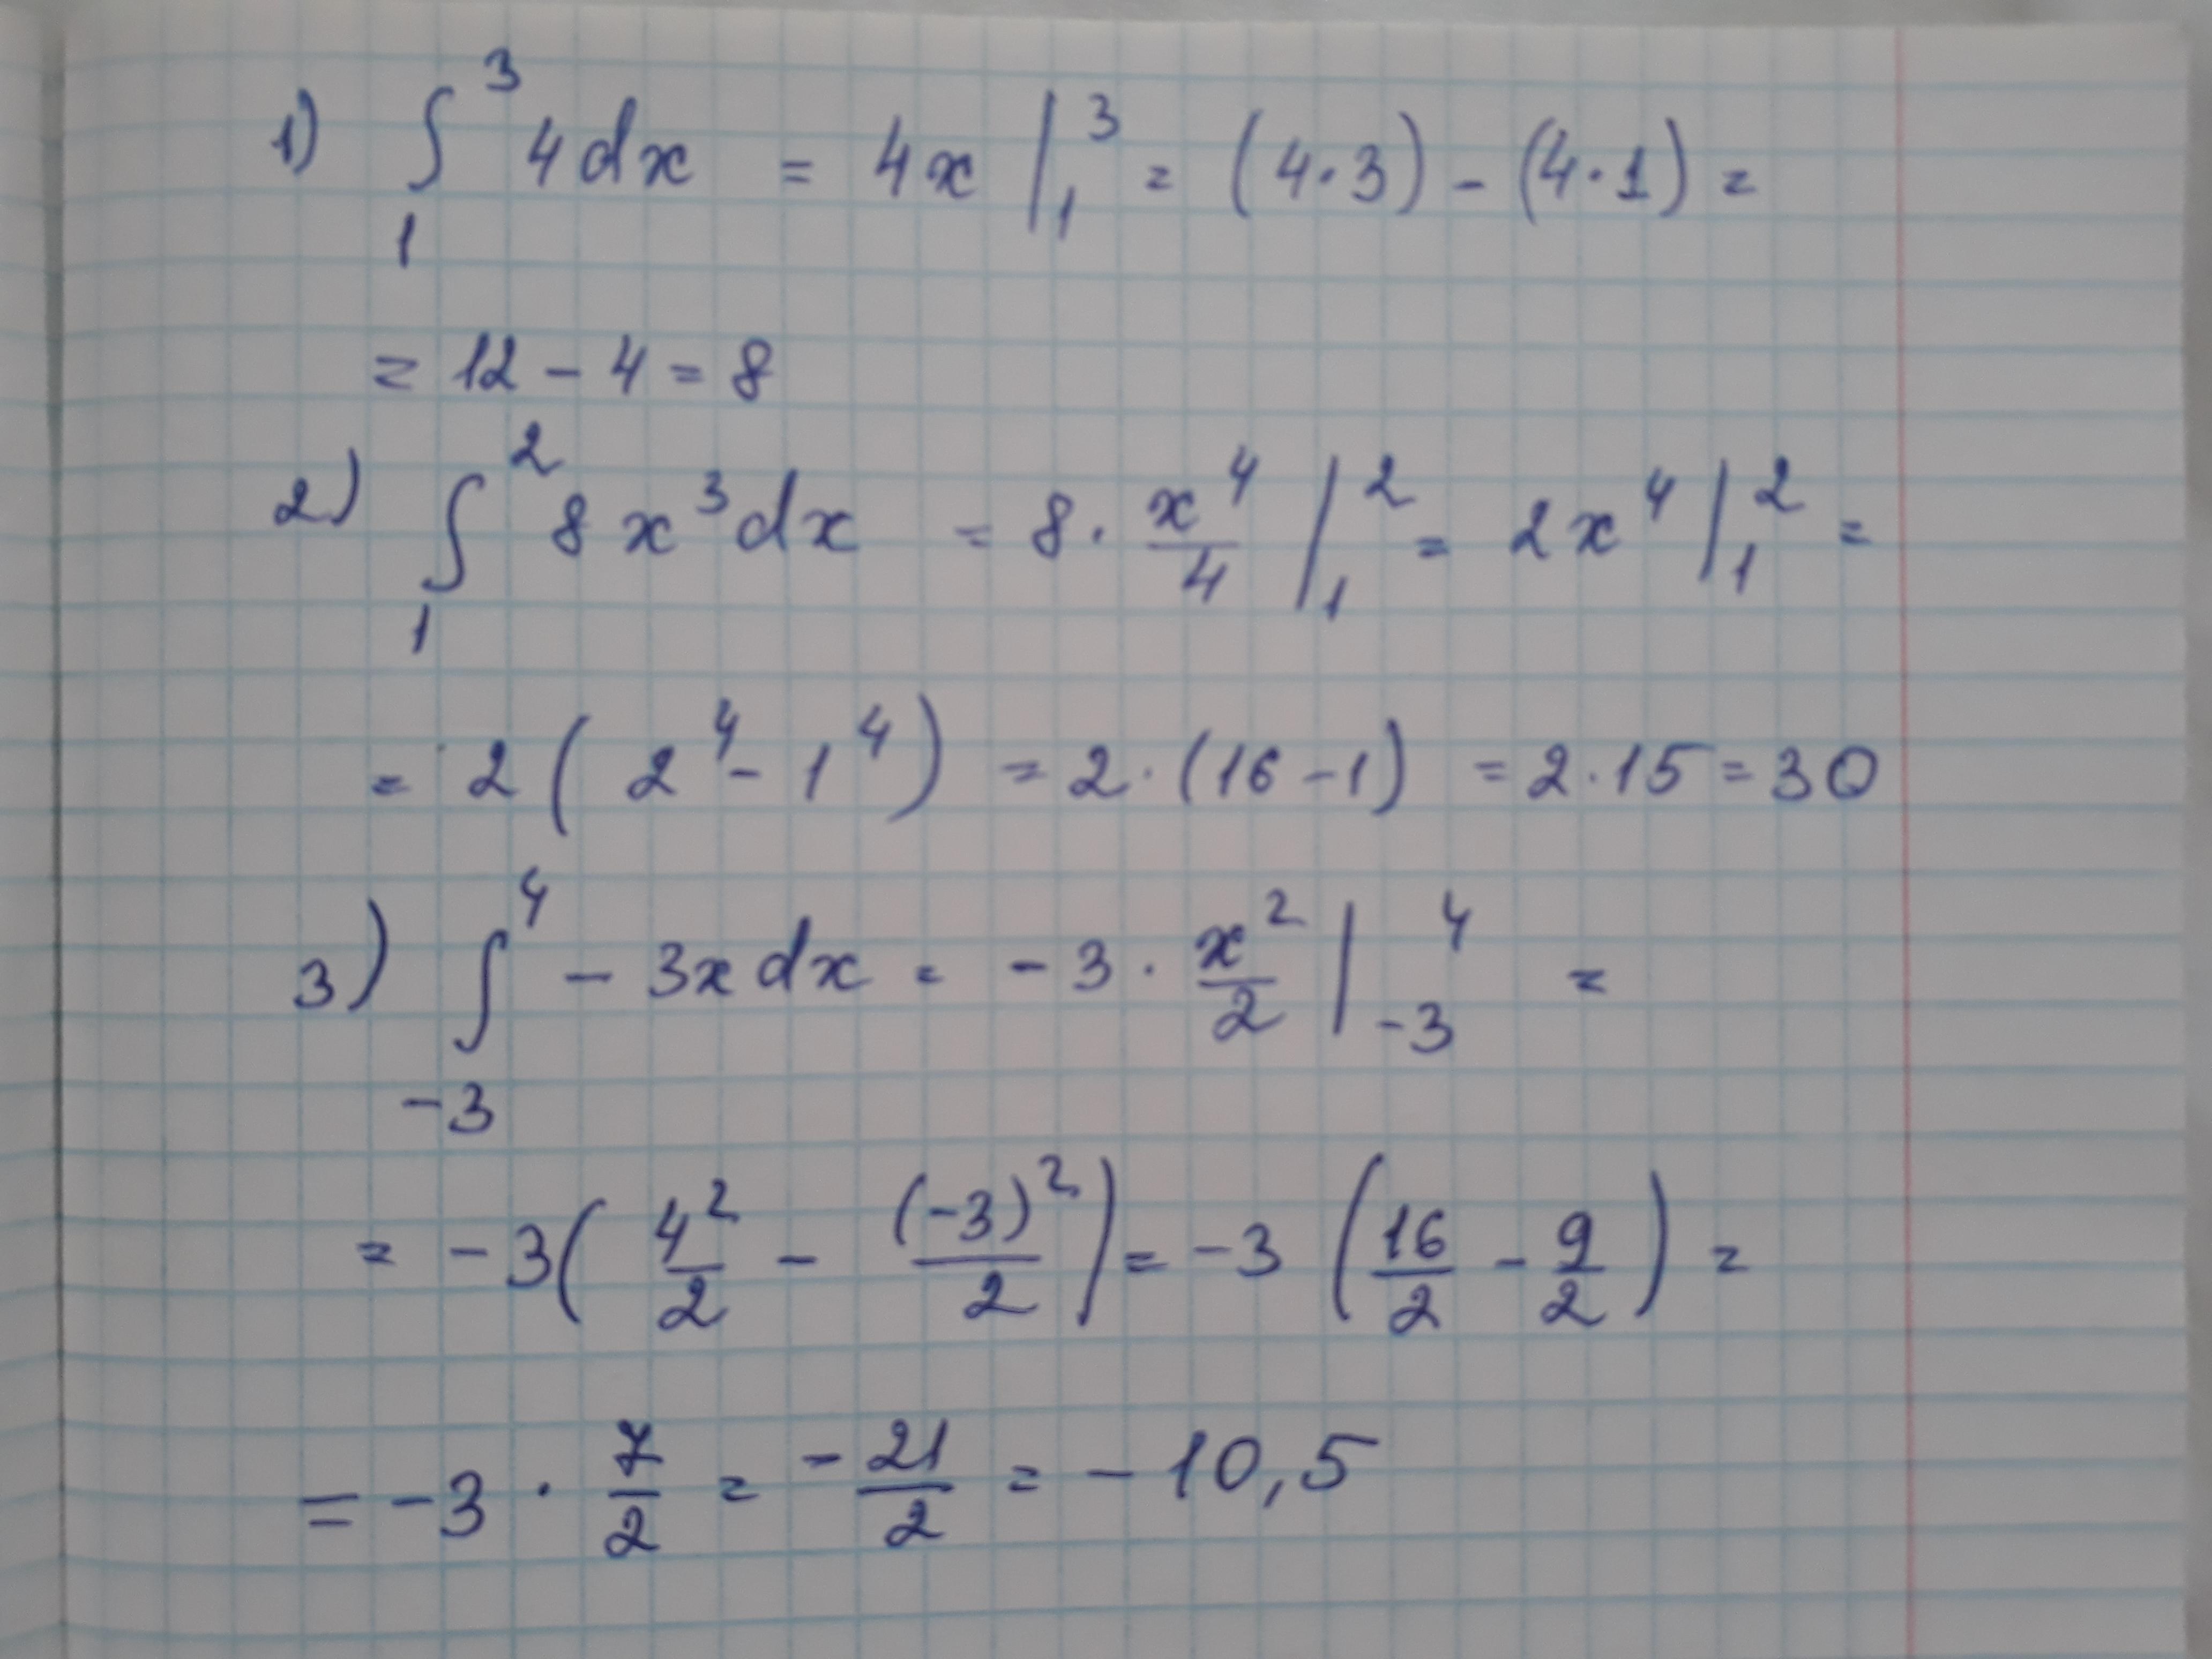 1) ∫₁³ 4dx = 4x |₁³ = (4·3) - (4·1) =
= 12 - 4 = 8
2) ∫₁² 8x³dx = 8 · x⁴/4 |₁² = 2x⁴ |₁² =
= 2(2⁴ - 1⁴) = 2·(16-1) = 2·15 = 30
3) ∫₋₃⁴ -3xdx = -3 · x²/2 |₋₃⁴ =
= -3(4²/2 - (-3)²/2) = -3(16/2 - 9/2) =
= -3 · 7/2 = -21/2 = -10,5